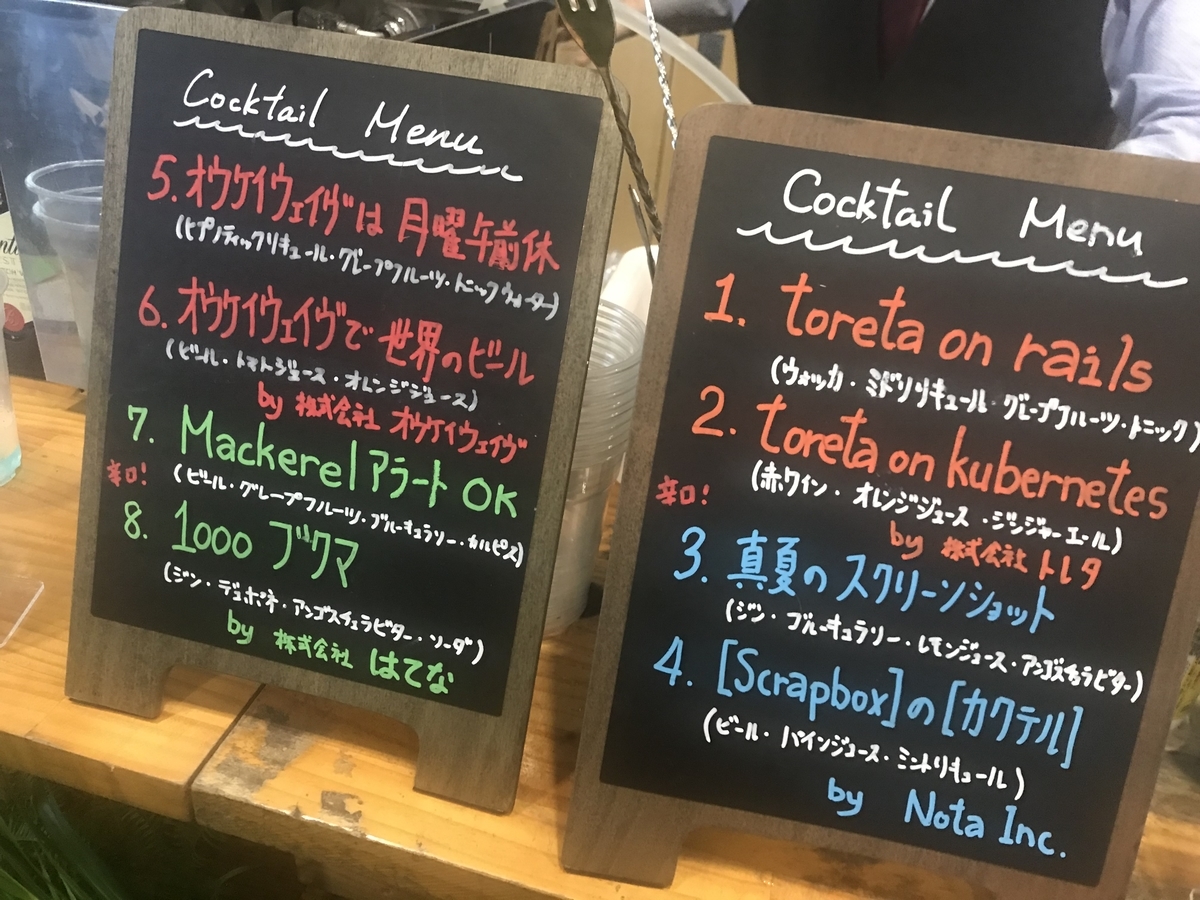 Cocktail Menu
5. オウケイウェイヴは 月曜午前休
(ヒプノティックリキュール・グレープフルーツ・トニックウォーター)
6. オウケイウェイヴで 世界のビール
(ビール・トマトジュース・オレンジジュース)
by 株式会社 オウケイウェイヴ
7. Mackerelアラート OK
辛口!
(ビール・グレープフルーツ・ブルーキュラソー・カルピス)
8. 1000 ブクマ
(ジン・デュボネ・アンゴスチュラビター・ソーダ)
by 株式会社 はてな
Cocktail Menu
1. toreta on rails
(ウォッカ・ミドリリキュール・グレープフルーツ・トニック)
2. toreta on kubernetes
(赤ワイン・オレンジジュース・ジンジャーエール)
辛口!
by 株式会社 トレタ
3. 真夏の スクリーンショット
(ジン・ブルーキュラソー・レモンジュース・アンゴスチュラビター)
4. [Scrapbox]の[カクテル]
(ビール・パインジュース・ミントリキュール)
by Nota Inc.